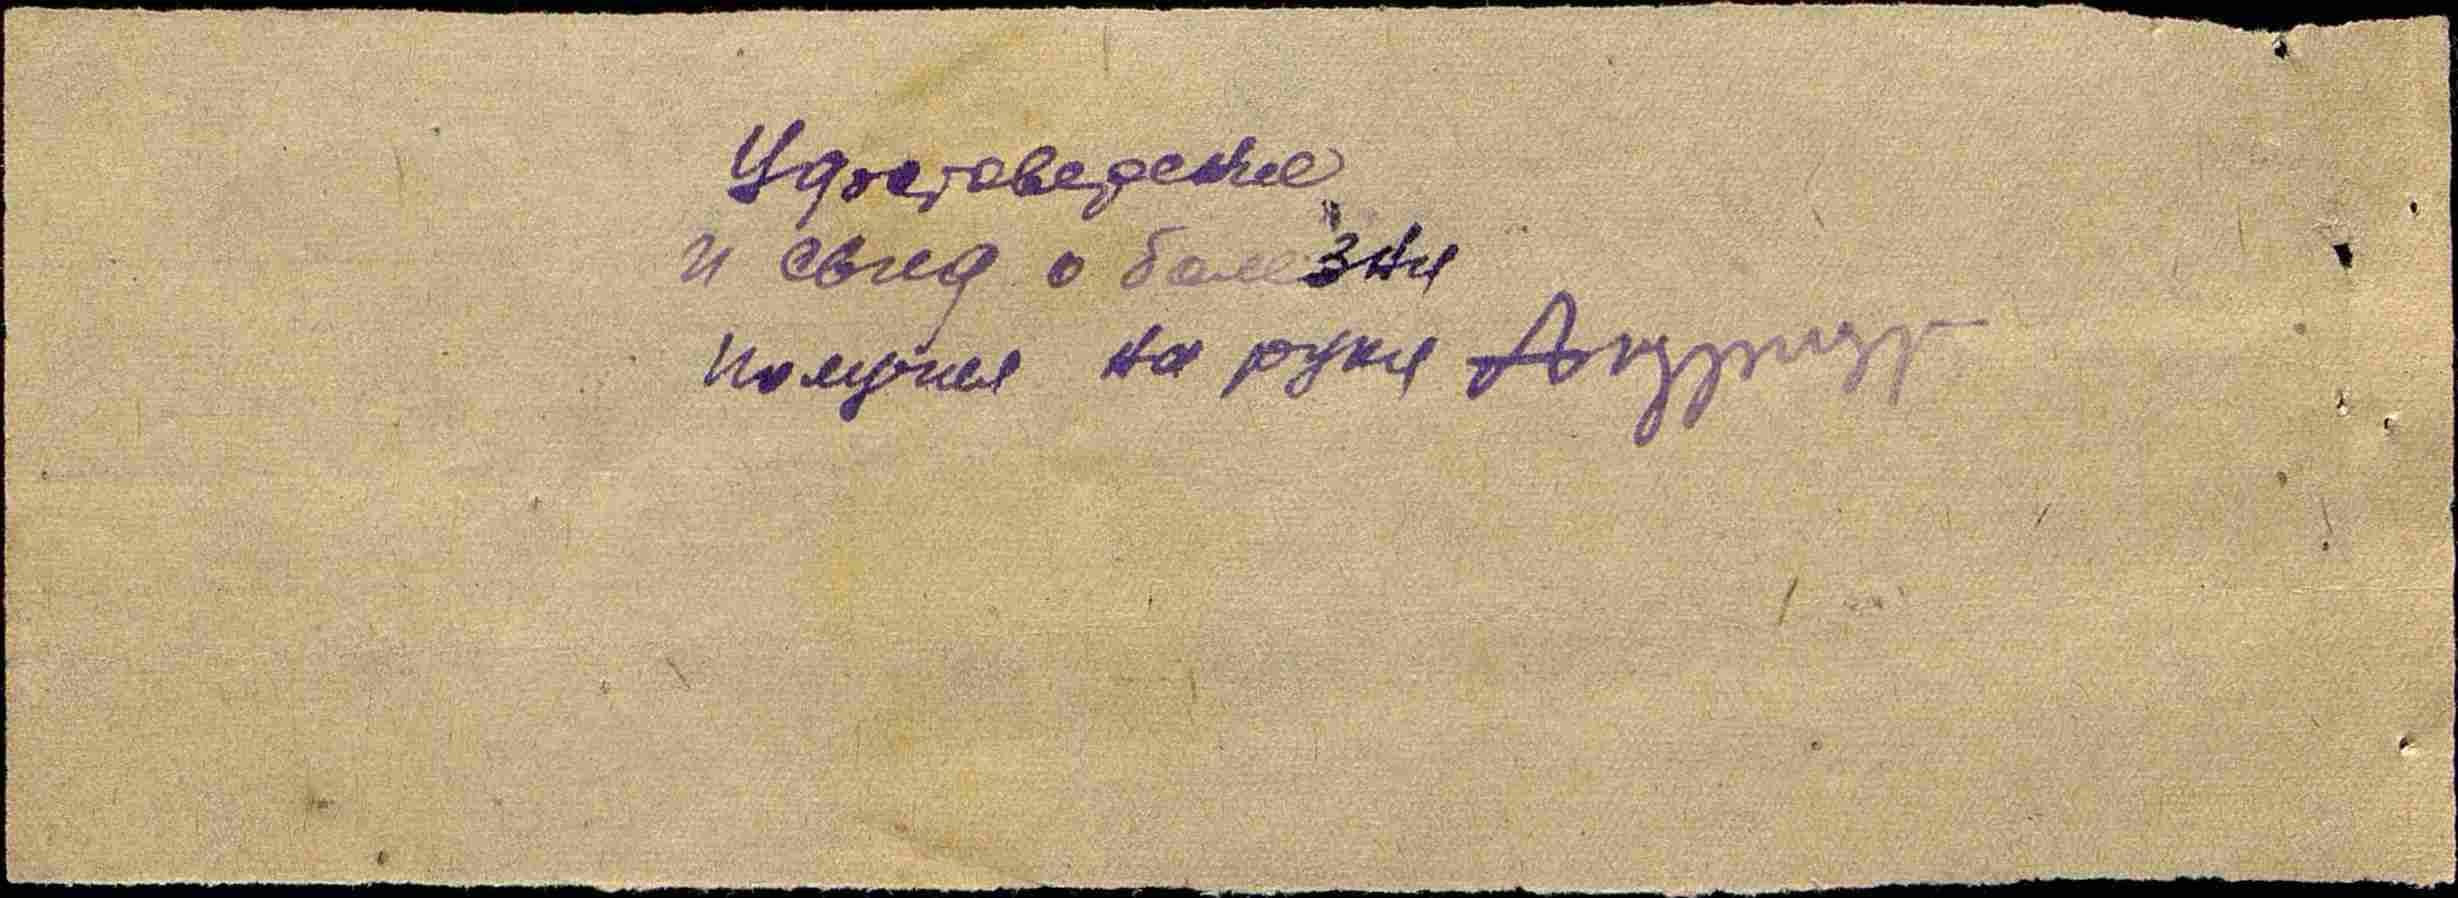 Удостоведение
и свид о болезни
получил на руки